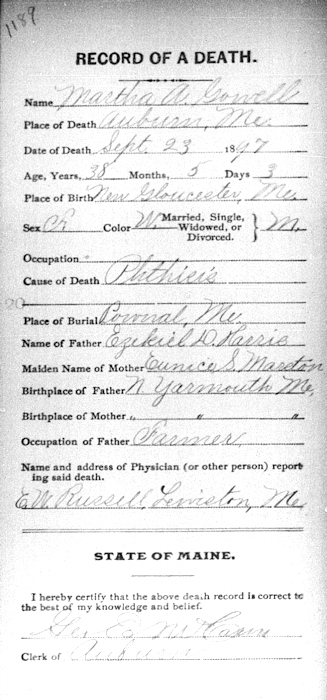 1189
RECORD OF A DEATH.
Name Martha A. Gowell
Place of Death Auburn, Me.
Date of Death Sept. 23 1897
Age, Years, 38 Months, 5 Days 3
Place of Birth New Gloucester, Me.
Sex Color W. Married, Single, Widowed, or Divorced. } M.
Occupation
Cause of Death Phthisis
20
Place of Burial Pownal, Me.
Name of Father Ezekiel D. Harris
Maiden Name of Mother Eunice S. Marston
Birthplace of Father N. Yarmouth Me,
Birthplace of Mother " " "
Occupation of Father Farmer
Name and address of Physician (or other person) report
ing said death.
E. W. Russell, Lewiston, Me.
STATE OF MAINE.
I hereby certify that the above death record is correct to
the best of my knowledge and belief.
Geo. E.
Clerk of Auburn